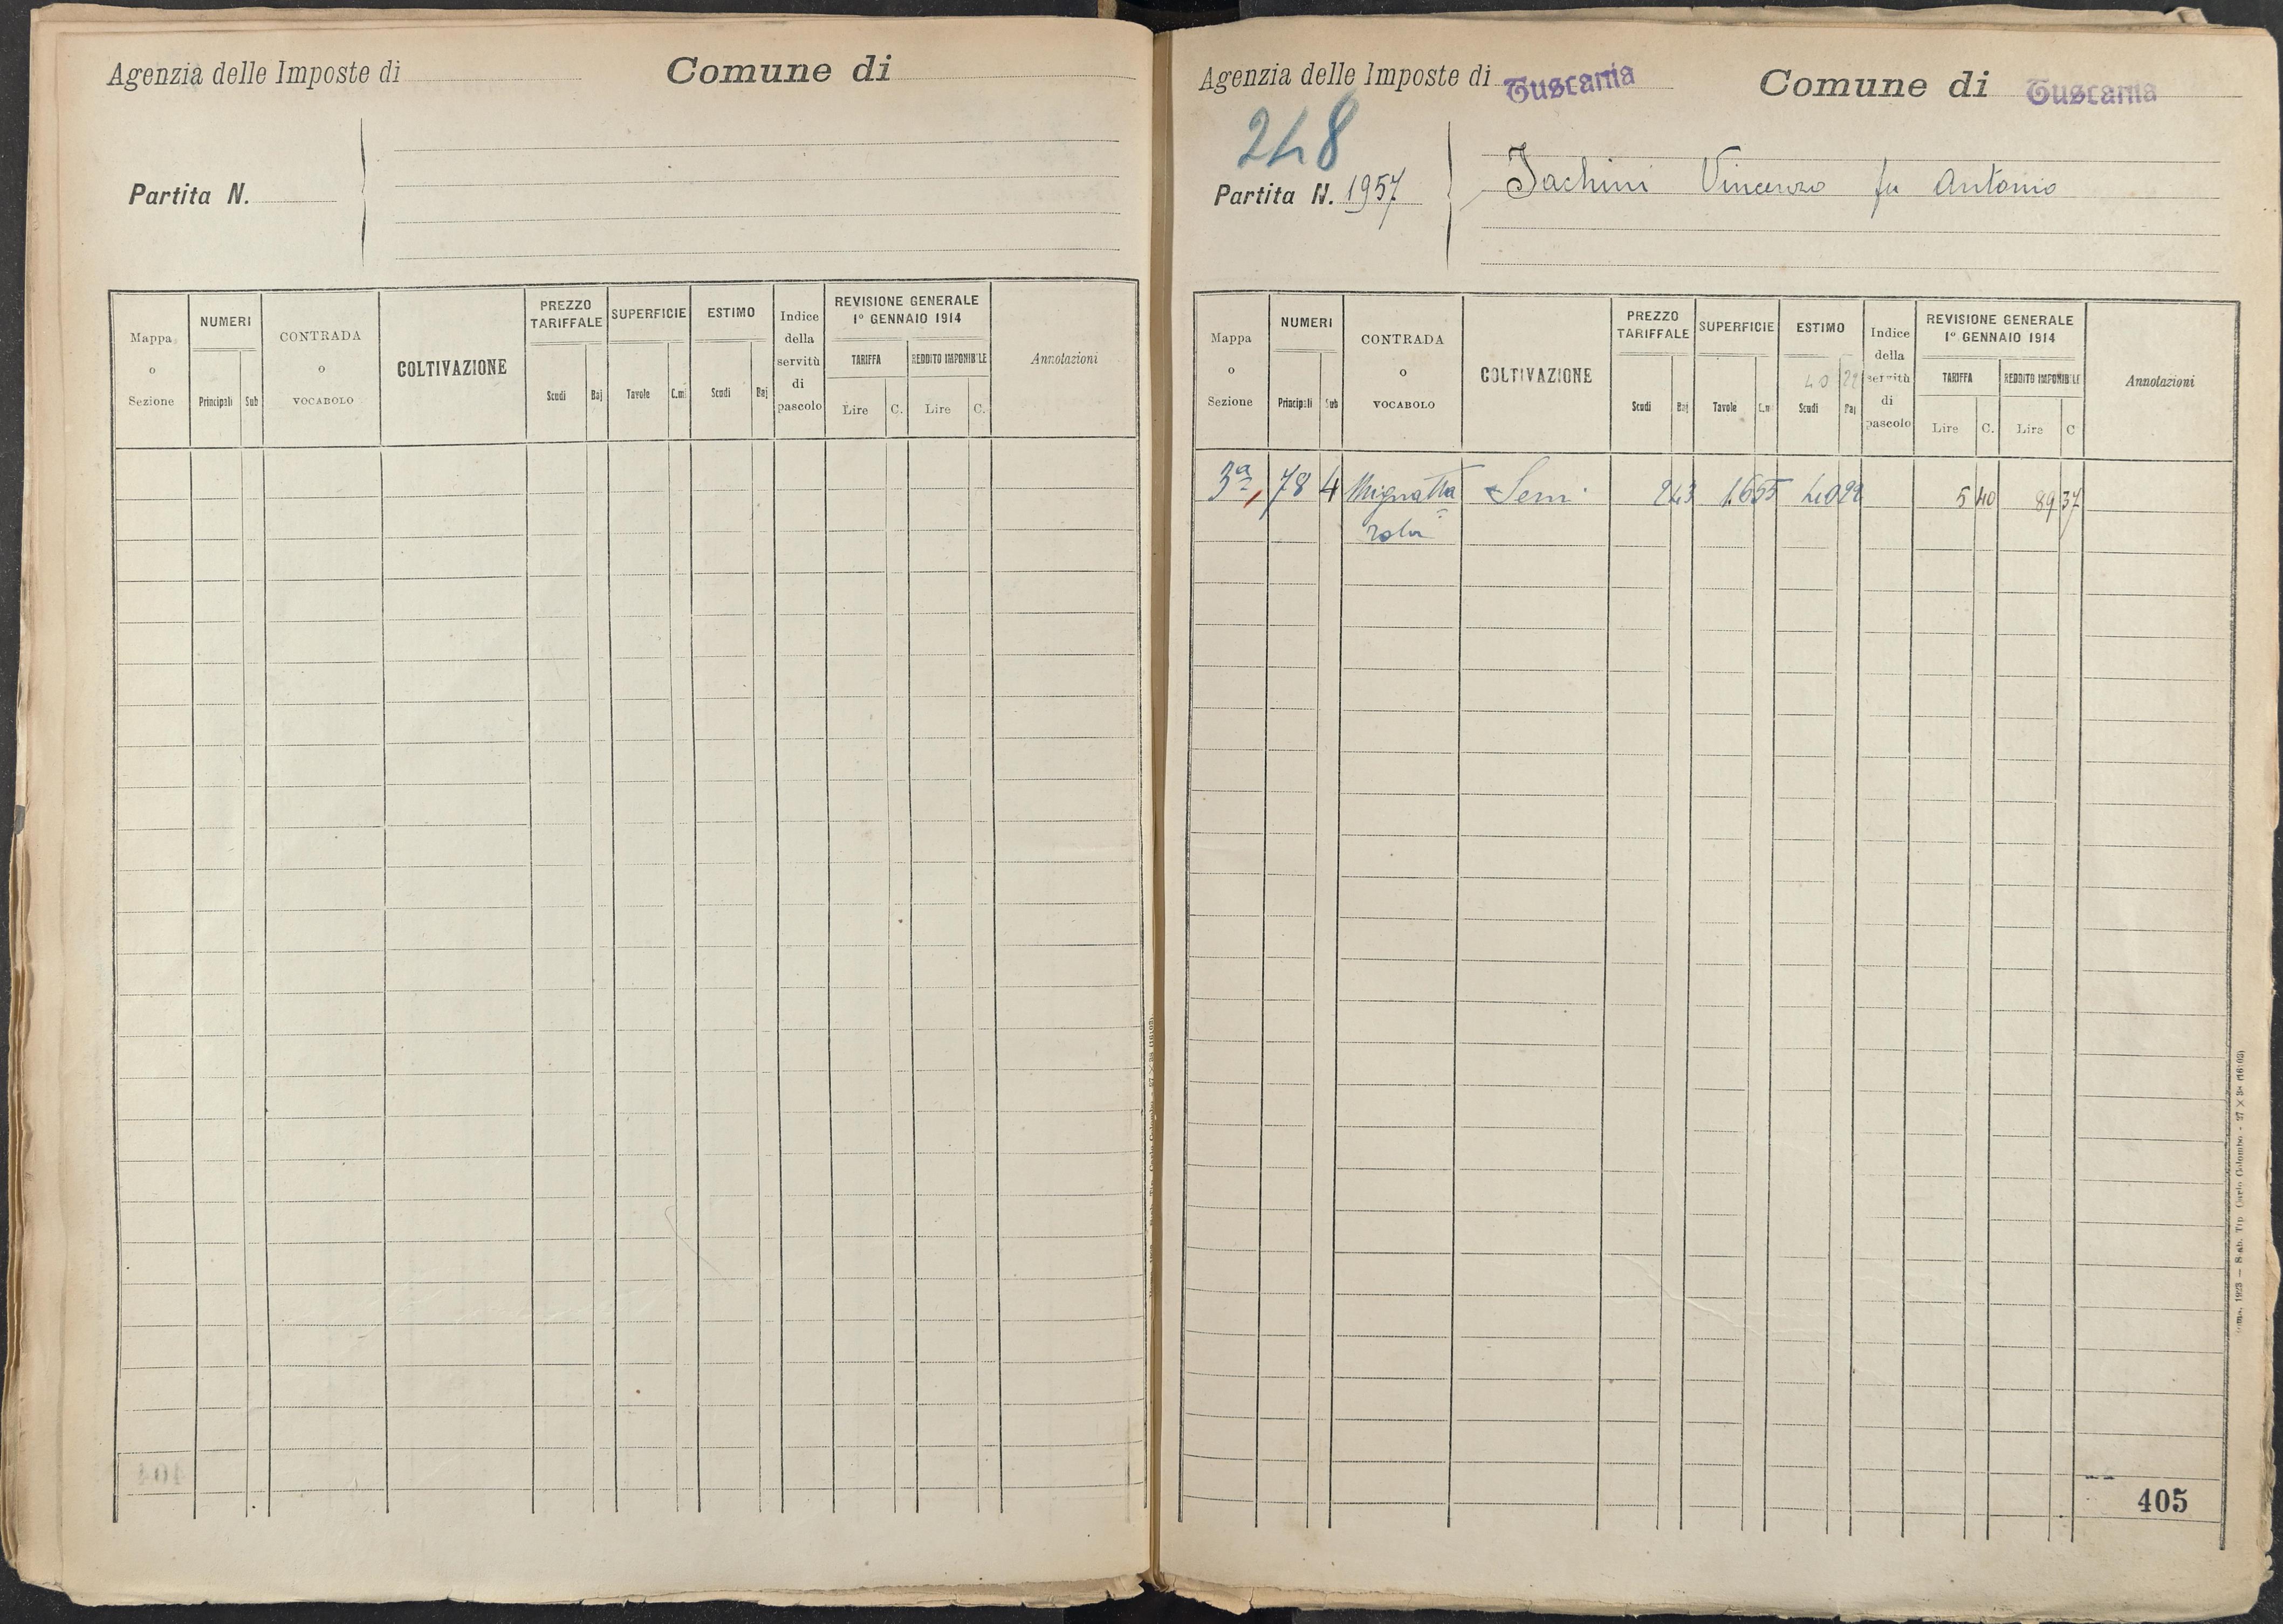 Agenzia delle Imposte di
Comune di
Partita N.
Mappa o Sezione
NUMERI
Principali Sub
CONTRADA o VOCABOLO
COLTIVAZIONE
PREZZO TARIFFALE
Scudi Baj
SUPERFICIE
Tavole C.mi
ESTIMO
Scudi Baj
Indice della servitù di pascolo
REVISIONE GENERALE
1º GENNAIO 1914
TARIFFA
Lire C.
REDDITO IMPONIBILE
Lire C.
Annotazioni
Agenzia delle Imposte di Tuscania
Comune di Tuscania
248
Partita N. 1957
Iachini Vincenzo fu Antonio
Mappa o Sezione
NUMERI
Principali Sub
CONTRADA o VOCABOLO
COLTIVAZIONE
PREZZO TARIFFALE
Scudi Baj
SUPERFICIE
Tavole C.mi
ESTIMO
40 22
Scudi Baj
Indice della servitù di pascolo
REVISIONE GENERALE
1º GENNAIO 1914
TARIFFA
Lire C.
REDDITO IMPONIBILE
Lire C
Annotazioni
3ª 78 4 Mignatta= Sem. 243 1655 4022 5 40 89 37
rola
405
Roma, 1923 — Stab. Tip. Carlo Colombo - 27 X 38